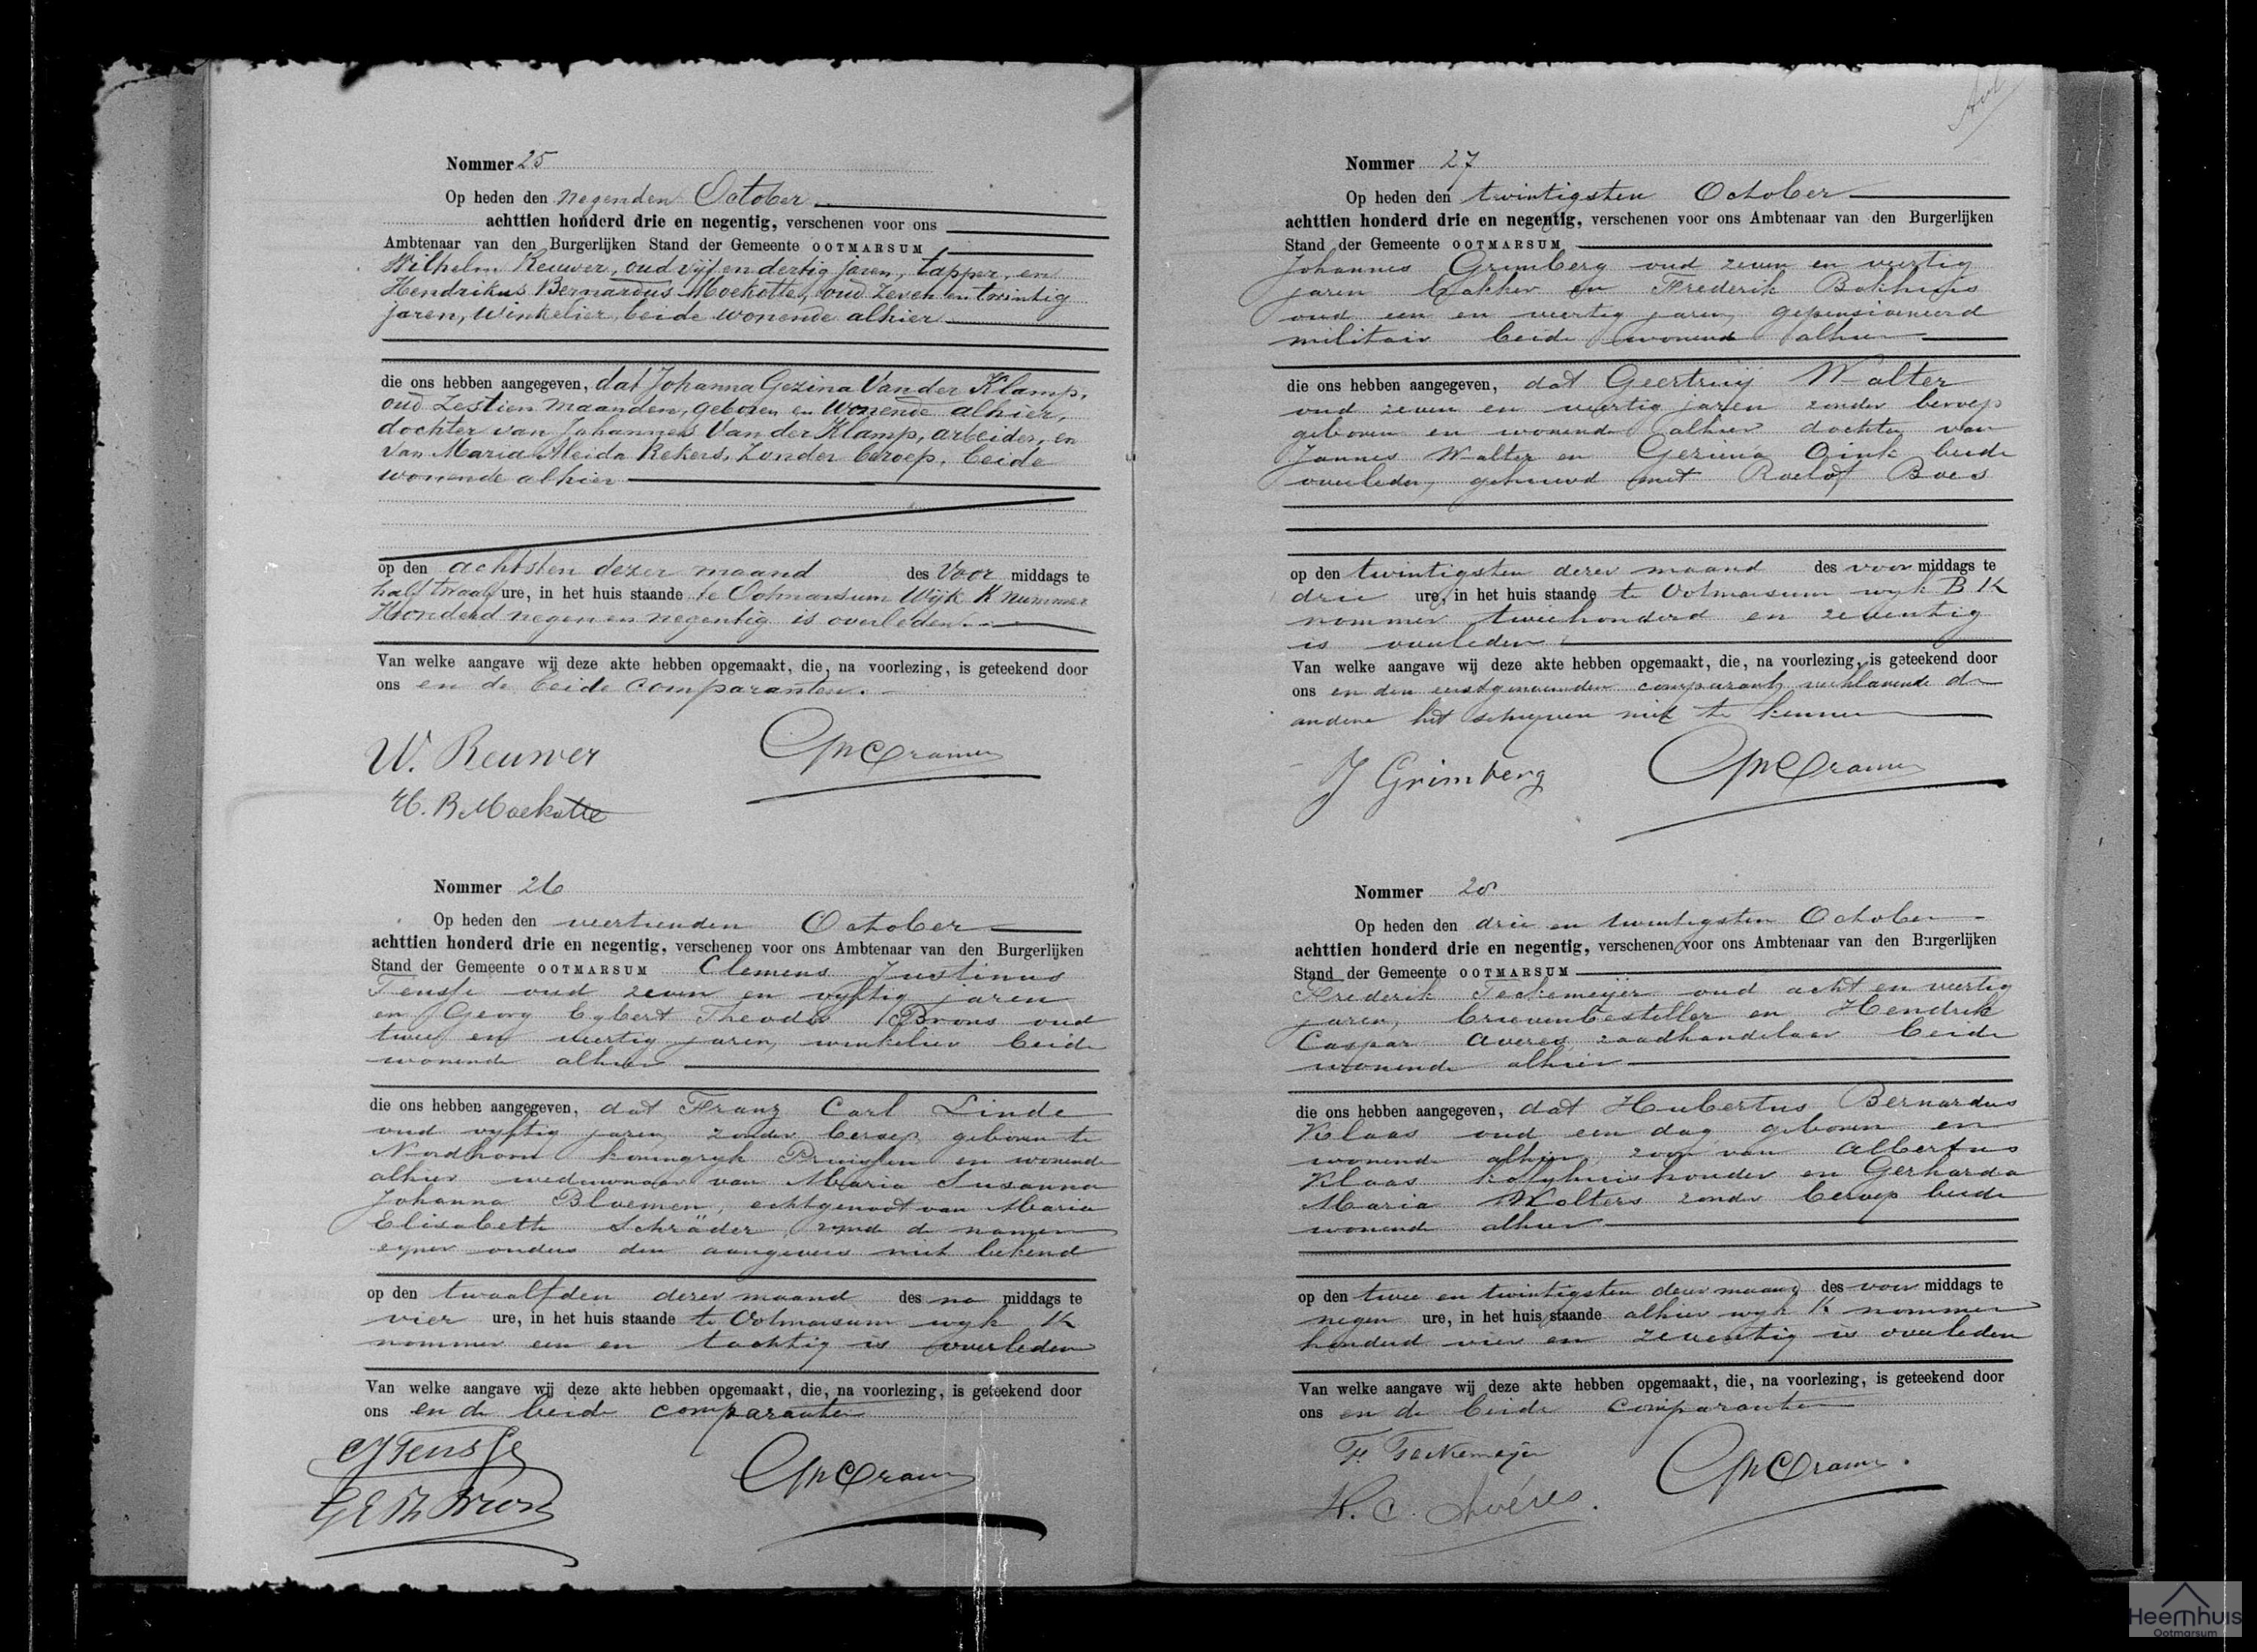 Nommer 25
Op heden den negenden October
achttien honderd drie en negentig, verschenen voor ons
Ambtenaar van den Burgerlijken Stand der Gemeente OOTMARSUM
Wilhelm Reuwer, oud vijf en dertig jaren, tapper, en
Hendrikus Bernardus Moekotte, oud zeven en twintig
jaren, winkelier, beide wonende alhier
die ons hebben aangegeven, dat Johanna Gezina Van der Klamp,
oud zestien maanden, geboren en wonende alhier,
dochter van Johannes Van der Klamp, arbeider, en
van Maria Aleida Rekers, zonder beroep, beide
wonende alhier
op den achtsten dezer maand des voor middags te
half twaalf ure, in het huis staande te Ootmarsum Wijk K nummer
Honderd negen en negentig is overleden.
Van welke aangave wij deze akte hebben opgemaakt, die, na voorlezing, is geteekend door
ons en de beide comparanten.
W. Reuwer
Cramer
H. B. Moekotte
Nommer 26
Op heden den veertienden October
achttien honderd drie en negentig, verschenen voor ons Ambtenaar van den Burgerlijken
Stand der Gemeente OOTMARSUM Clemens Justinus
oud zeven en vyftig jaren
en Georg Egbert Theodor Brons oud
twee en veertig jaren, winkelier beide
wonende alhier
die ons hebben aangegeven, dat Franz Carl Linde
oud vyftig jaren, zonder beroep, geboren te
Nordhorn koningryk Pruissen en wonende
alhier weduwnaar van Maria Susanna
Johanna Bloemen, echtgenoot van Maria
Elisabeth Schräder, zynde de namen
zyner ouders den aangevers niet bekend
op den twaalfden dezer maand des na middags te
vier ure, in het huis staande te Ootmarsum wyk K
nommer een en tachtig is overleden
Van welke aangave wij deze akte hebben opgemaakt, die, na voorlezing, is geteekend door
ons en de beide comparanten
Cramer
G E Th Brons
Nommer 27
Op heden den twintigsten October
achttien honderd drie en negentig, verschenen voor ons Ambtenaar van den Burgerlijken
Stand der Gemeente OOTMARSUM
Johannes Grimberg oud zeven en veertig
jaren bakker en Frederik Bokhuis
oud een en veertig jaren, gepensioneerd
militair beide wonende alhier
die ons hebben aangegeven, dat Geertruij Walter
oud zeven en veertig jaren zonder beroep
geboren en wonende alhier dochter van
Jannes Walter en Gezina Oink beide
overleden, gehuwd met Roelof Boers
op den twintigsten dezer maand des voor middags te
drie ure, in het huis staande te Ootmarsum wyk B K
nommer tweehonderd en zeventig
is overleden
Van welke aangave wij deze akte hebben opgemaakt, die, na voorlezing, is geteekend door
ons en den eerstgenoemden comparant, verklarende de
andere het schryven niet te kennen
J Grimberg
Cramer
Nommer 28
Op heden den drie en twintigsten October
achttien honderd drie en negentig, verschenen voor ons Ambtenaar van den Burgerlijken
Stand der Gemeente OOTMARSUM
Frederik Fockemeijer oud acht en veertig
jaren, brievenbesteller en Hendrik
Caspar Averes zaadhandelaar beide
wonende alhier
die ons hebben aangegeven, dat Hubertus Bernardus
Klaas oud een dag geboren en
wonende alhier, zoon van Albertus
Klaas koffyhuishouder en Gerharda
Maria Wolters zonder beroep beide
wonende alhier
op den twee en twintigsten dezer maand des voor middags te
negen ure, in het huis staande alhier wyk K nommer
honderd vier en zeventig is overleden
Van welke aangave wij deze akte hebben opgemaakt, die, na voorlezing, is geteekend door
ons en de beide comparanten
Fr. Fockemeijer
Cramer
H. C. Avéres.
Heemhuis
Ootmarsum